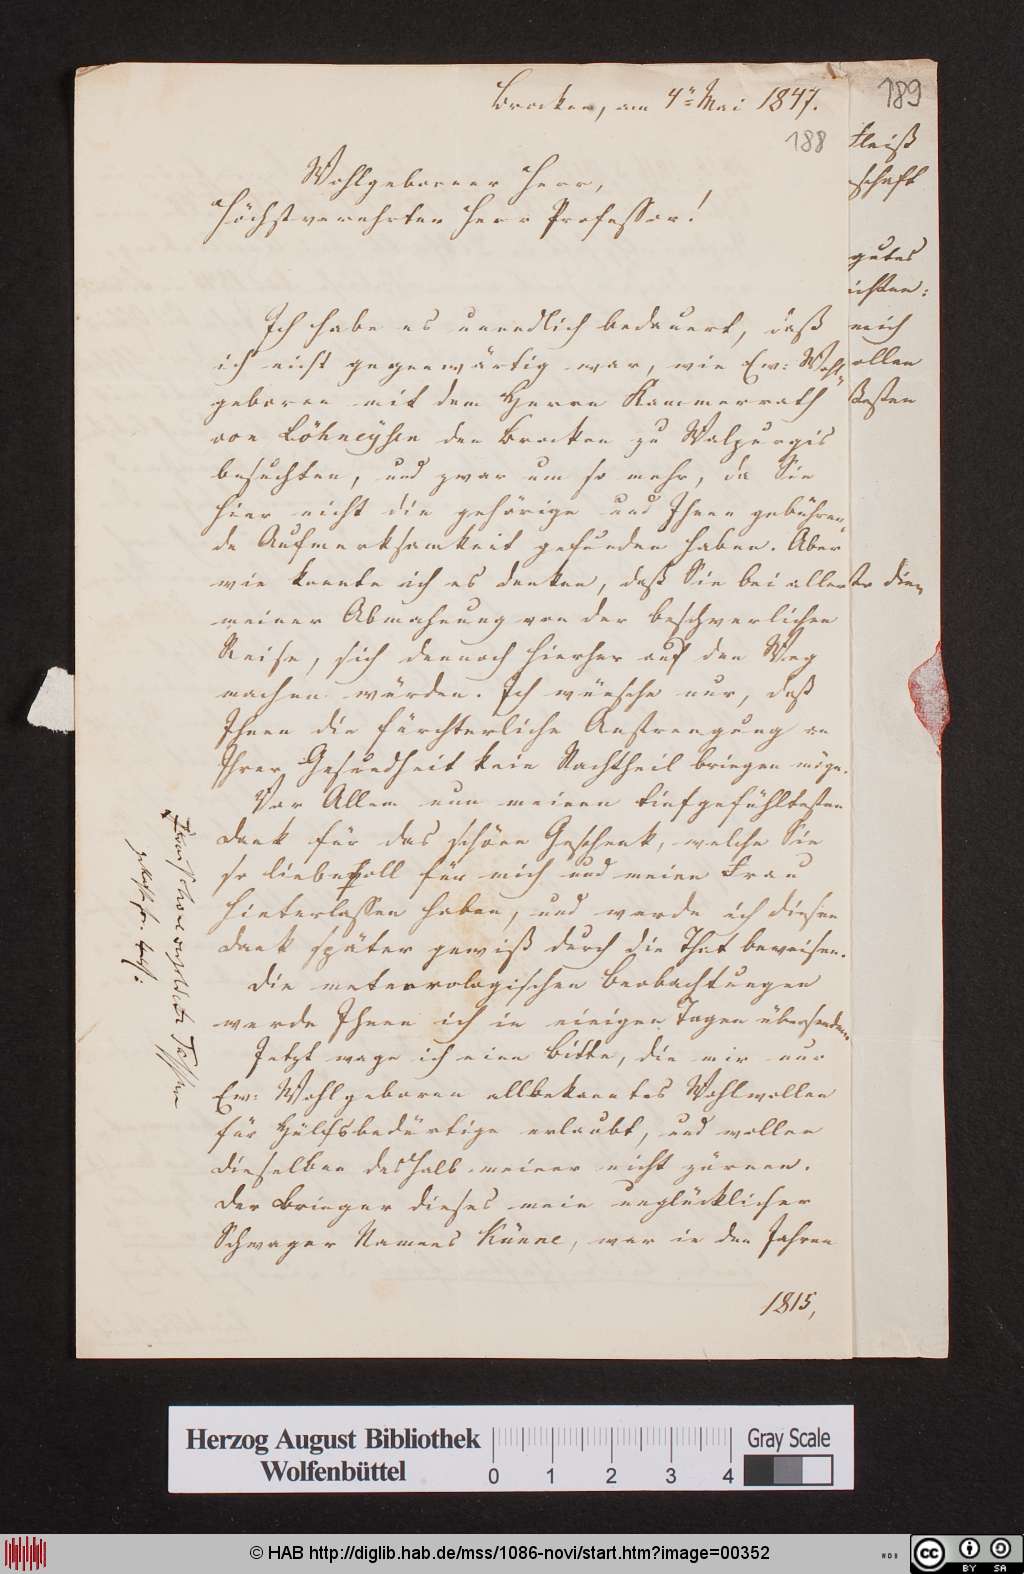 Brocken, am 4ten Mai 1847.
188
Wohlgeborner Herr,
Höchstverehrter Herr Professor!
Ich habe es unendlich bedauert, daß
ich nicht gegenwärtig war, wie Ew: Wohl-
geboren mit dem Herrn Kammerrath
von Löhneÿsen den Brocken zu Walpurgis
besuchten, und zwar um so mehr, da Sie
hier nicht die gehörige und Ihnen gebühren-
de Aufmerksamkeit gefunden haben. Aber
wie konnte ich es denken, daß Sie bei aller
meiner Abmahnung von der beschwerlichen
Reise, sich dennoch hierher auf den Weg
machen würden. Ich wünsche nur, daß
Ihnen die fürchterliche Anstrengung an
Ihrer Gesundheit kein Nachtheil bringen möge.
Vor Allem nun meinen tiefgefühltesten
Dank für das schöne Geschenk, welche Sie
so liebevoll für mich und meine Frau
hinterlassen haben, und werde ich diesen
Dank später gewiß durch die That beweisen.
Die meteorologischen Beobachtungen
werde Ihnen ich in einigen Tagen übersenden.
Jetzt wage ich eine Bitte, die mir nur
Ew: Wohlgeboren allbekanntes Wohlwollen
für Hülfsbedürftige erlaubt, und wollen
dieselben deshalb meiner nicht zürnen.
Der Bringer dieses mein unglücklicher
Schwager Namens Künne, war in den Jahren
1815,
vergoldete Tassen
189
Fleiß
schaft
gutes
ichsten:
mich
ollen
Besten
Herzog August Bibliothek
Wolfenbüttel
0 1 2 3 4
Gray Scale
© HAB http://diglib.hab.de/mss/1086-novi/start.htm?image=00352
WDB
cc BY SA